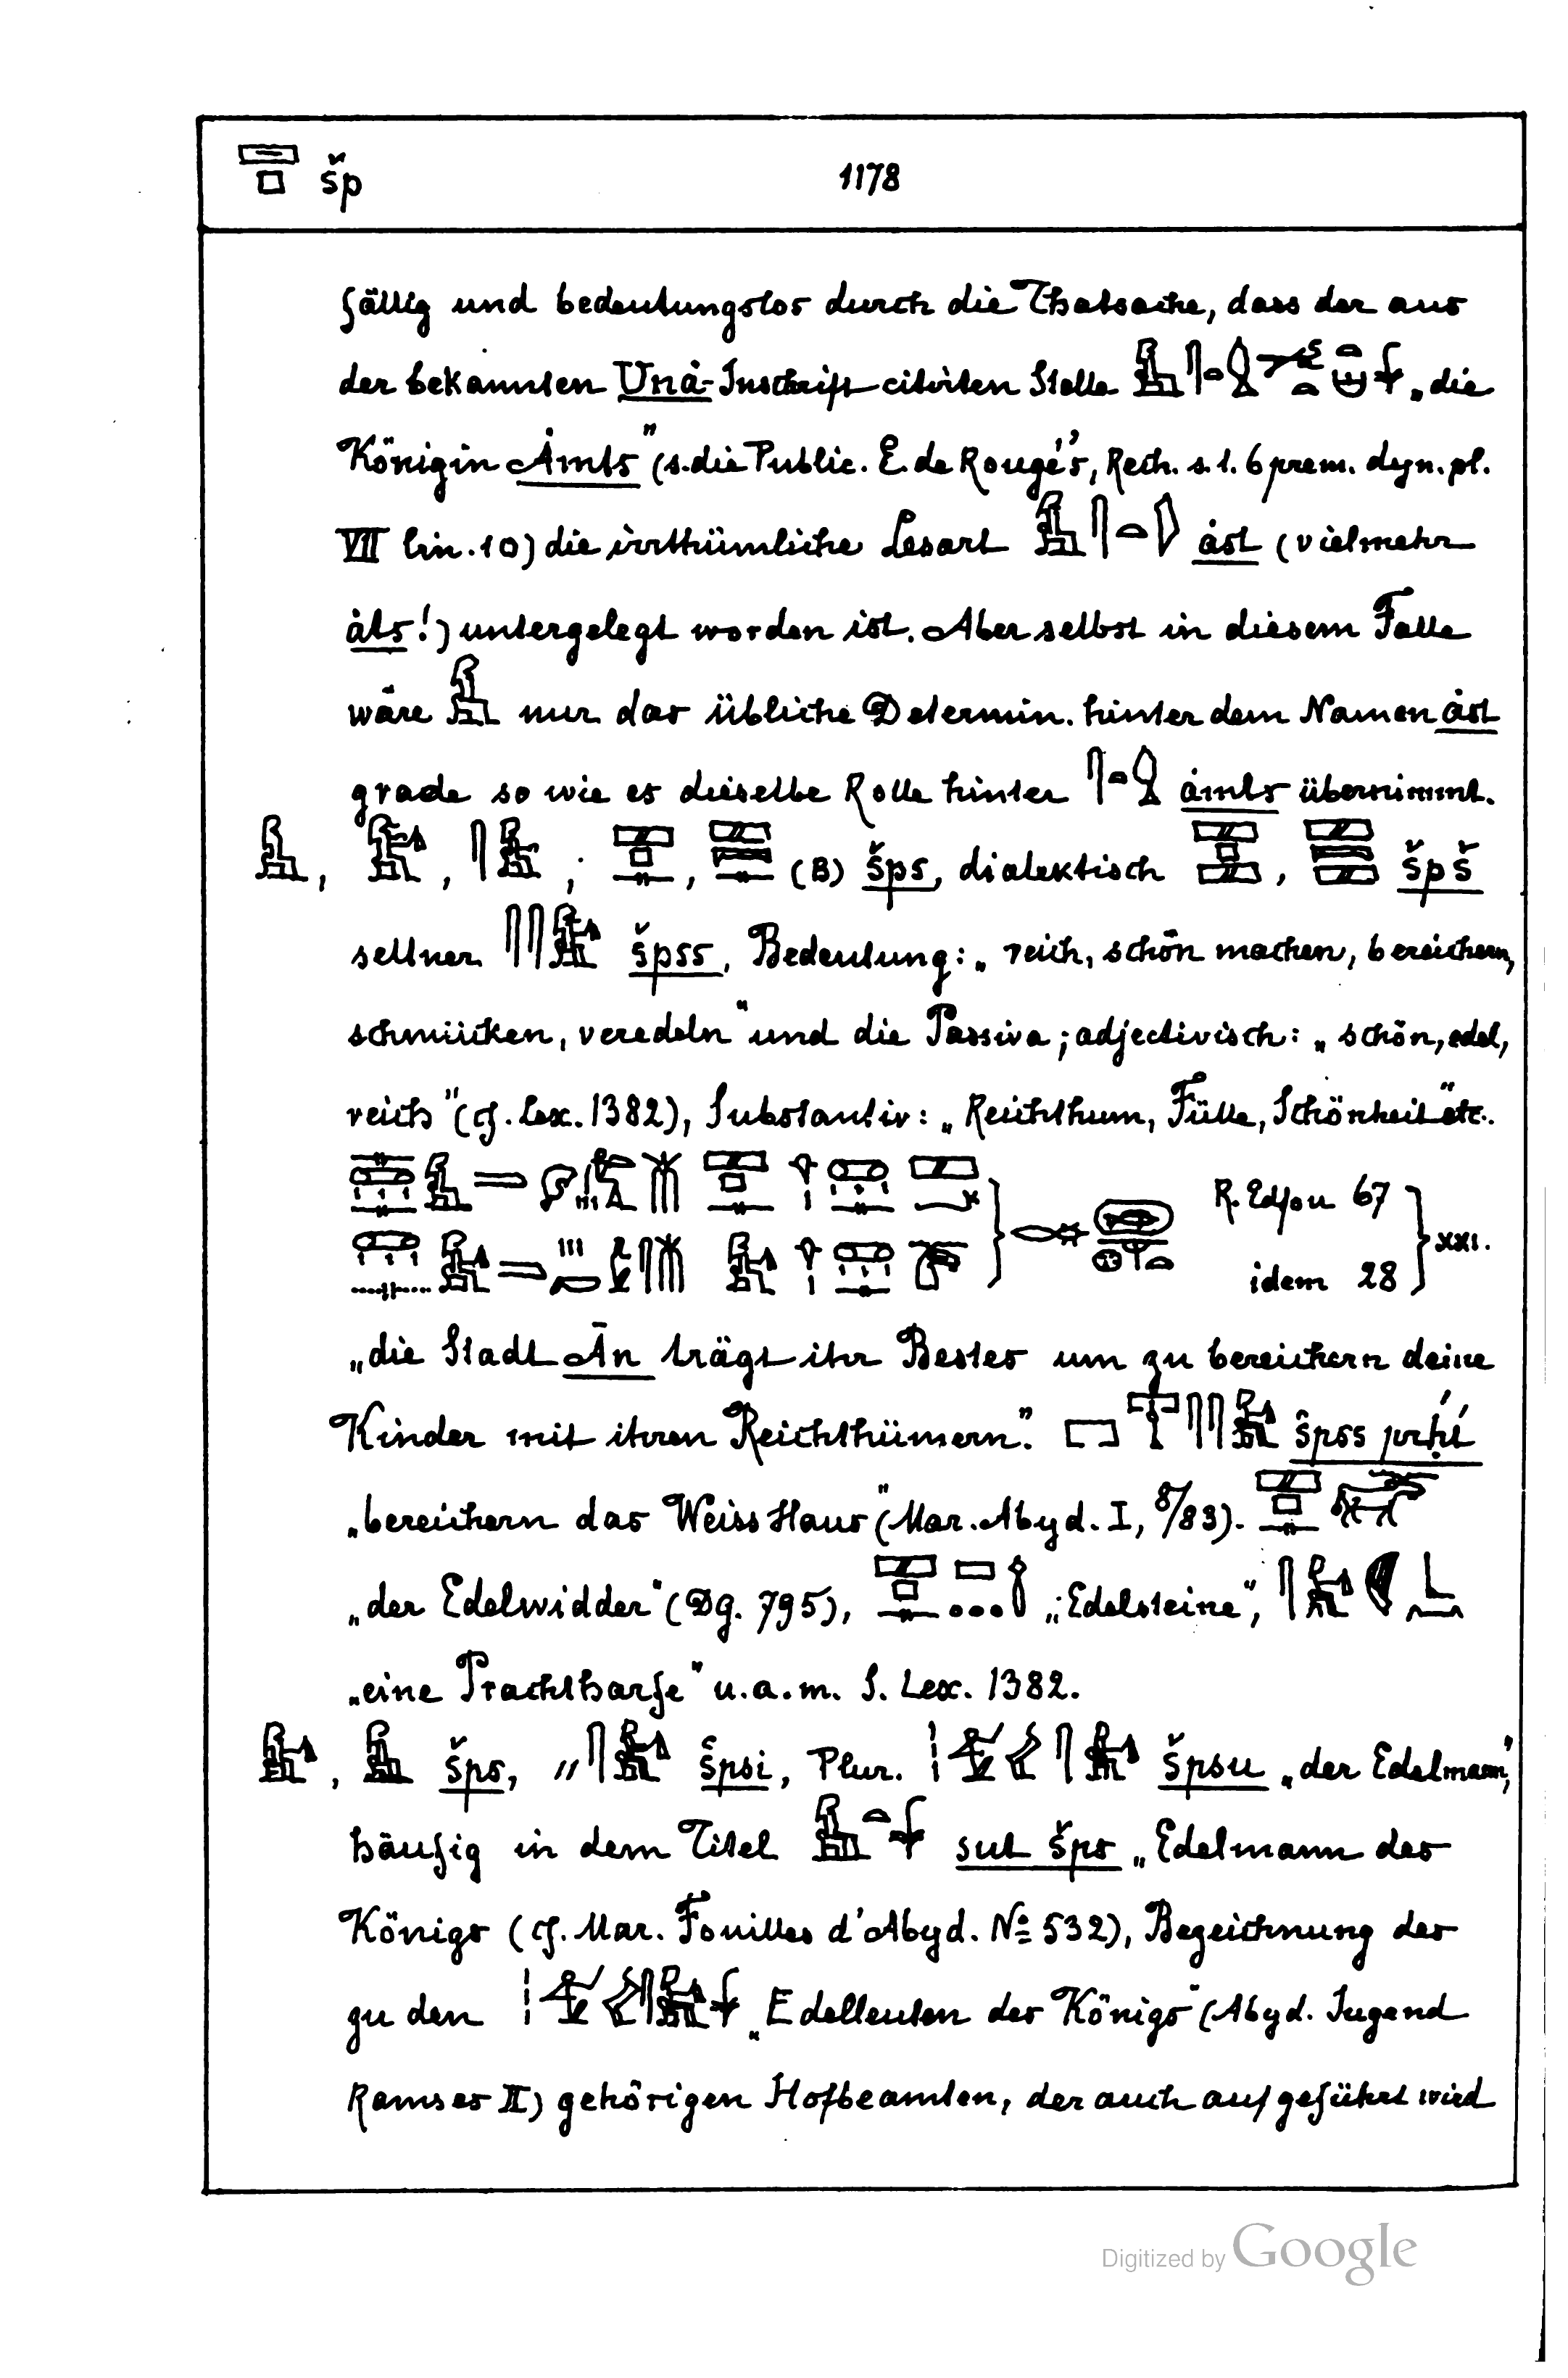 šp 1178
fällig und bedeutungslos durch die Thatsache, dass der aus
der bekannten Unȧ-Inschrift citirten Stelle „die
Königin Ȧmts" (s. die Public. E. de Rougé's, Rech. s. l. 6 prem. dyn. pl.
VII lin. 10) die irrthümliche Lesart ȧst (vielmehr
ȧts!) untergelegt worden ist. Aber selbst in diesem Falle
wäre nur das übliche Determin. hinter dem Namen ȧst
grade so wie es dieselbe Rolle hinter ȧmts übernimmt.
, , ; , (B) šps, dialektisch , špš
seltner špss, Bedeutung: „reich, schön machen, bereichern,
schmücken, veredeln" und die Passiva; adjectivisch: „schön, edel,
reich" (cf. Lex. 1382), Substantiv: „Reichthum, Fülle, Schönheit" etc.
R. Edfou 67
idem 28 XXI.
„die Stadt Ān trägt ihr Bestes um zu bereichern deine
Kinder mit ihren Reichthümern". špss
„bereichern das Weiss Haus" (Mar. Abyd. I, 8/83).
„der Edelwidder" (Dg. 795), „Edelsteine",
„eine Prachtharfe" u.a.m. S. Lex. 1382.
, šps, špsi, Plur. špsu „der Edelmann",
häufig in dem Titel sut šps „Edelmann des
Königs (cf. Mar. Fouilles d'Abyd. No 532), Bezeichnung des
zu den „Edelleuten des Königs" (Abyd. Jugend
Ramses II) gehörigen Hofbeamten, der auch aufgeführt wird
Digitized by Google